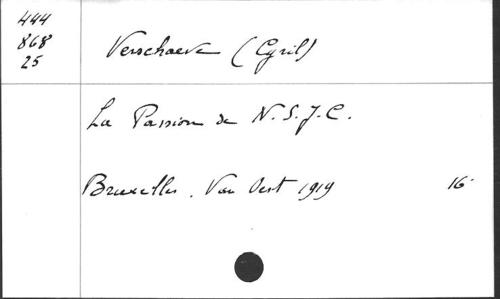 444
868
25
Verschaeve (Cyril)
La Passion de N. S. J. C.
Bruxelles. Van Oest 1919 16°